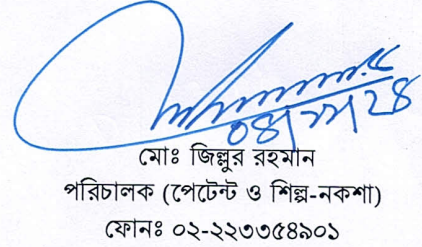 মোঃ জিল্লুর রহমান
পরিচালক (পেটেন্ট ও শিল্প-নকশা)
ফোনঃ ০২-২২৩৩৫৪৯০১